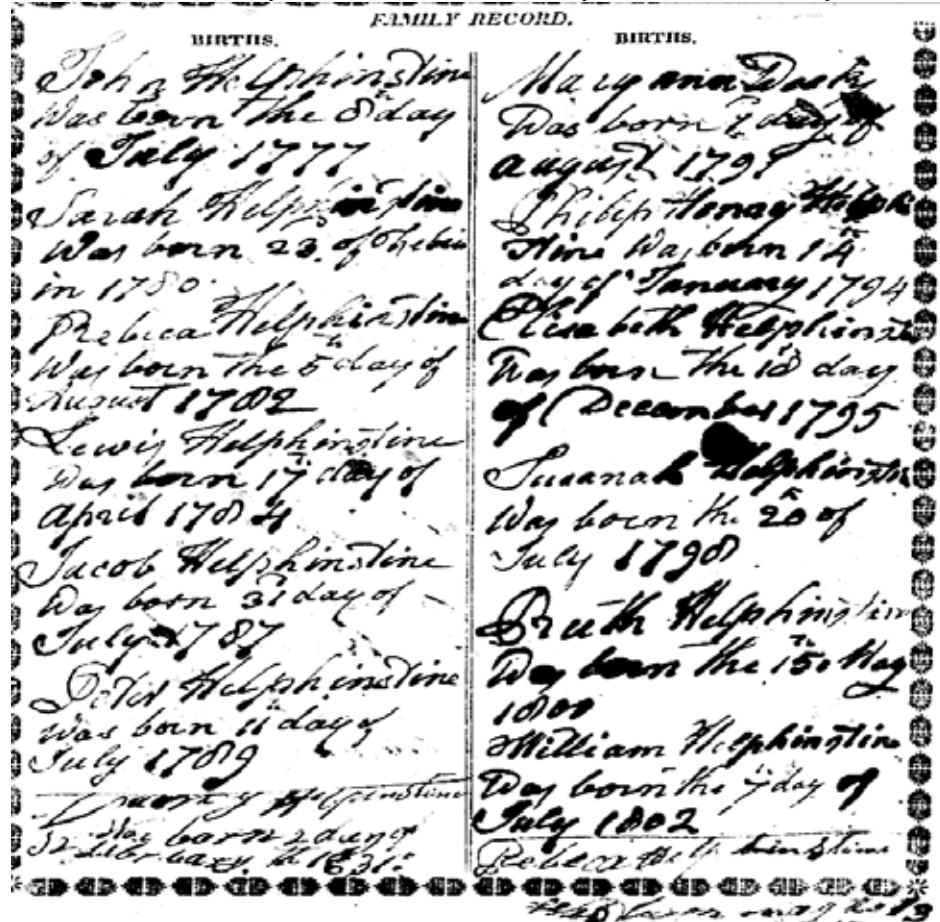 FAMILY RECORD.
BIRTHS.
John Helphinstine
Was born the 8 day
of July 1777
Sarah Helphinstine
Was born 23. of Phebu
in 1780.
Rebeca Helphinstine
Was born the 5th day of
August 1782
Lewis Helphinstine
Was born 17 day of
April 1784
Jacob Helphinstine
Was born 31 day of
July 1787
Peter Helphinstine
Was born 11 day of
July 1789
Helpenstine
Was born 2 day of
in 1831.
BIRTHS.
Mary ann
Was born 7 day of
August 179
Philip Henry Helphi
stine Was born 14
day of January 1794
Elisabeth Helphinstine
Was born the 18 day
of December 1795
Susanah Helphinstin
Was born the 20 of
July 1798
Ruth Helphinstine
Was born the 15th May
1800
William Helphinstine
Was born the 7 day of
July 1802
Rebeca Helphinstine
born